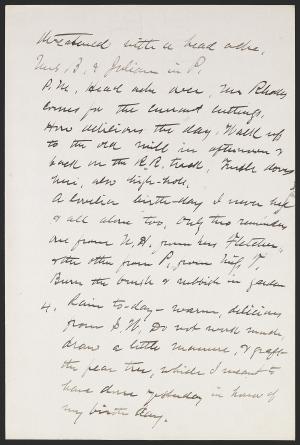 threatened with a head ache.
Mrs. B. & Julian in P.
P.M. Head ache over, Mr Rhodes
comes for the currant cuttings.
How delicious the day. Walk up
to the old mill in afternoon &
back on the R.R. track. Turtle doves
here, also high-hole.
A lovelier birth-day I never had
& all alone too. Only two reminders
one from N.H. from Mrs Fletcher,
& the other from P. from
Burn the brush & rubbish in garden
4. Rain to-day - warm, delicious
from S.W. Do not work much,
draw a little manure, & graft
the pear tree, which I meant to
have done yesterday in honor of
my birth day.